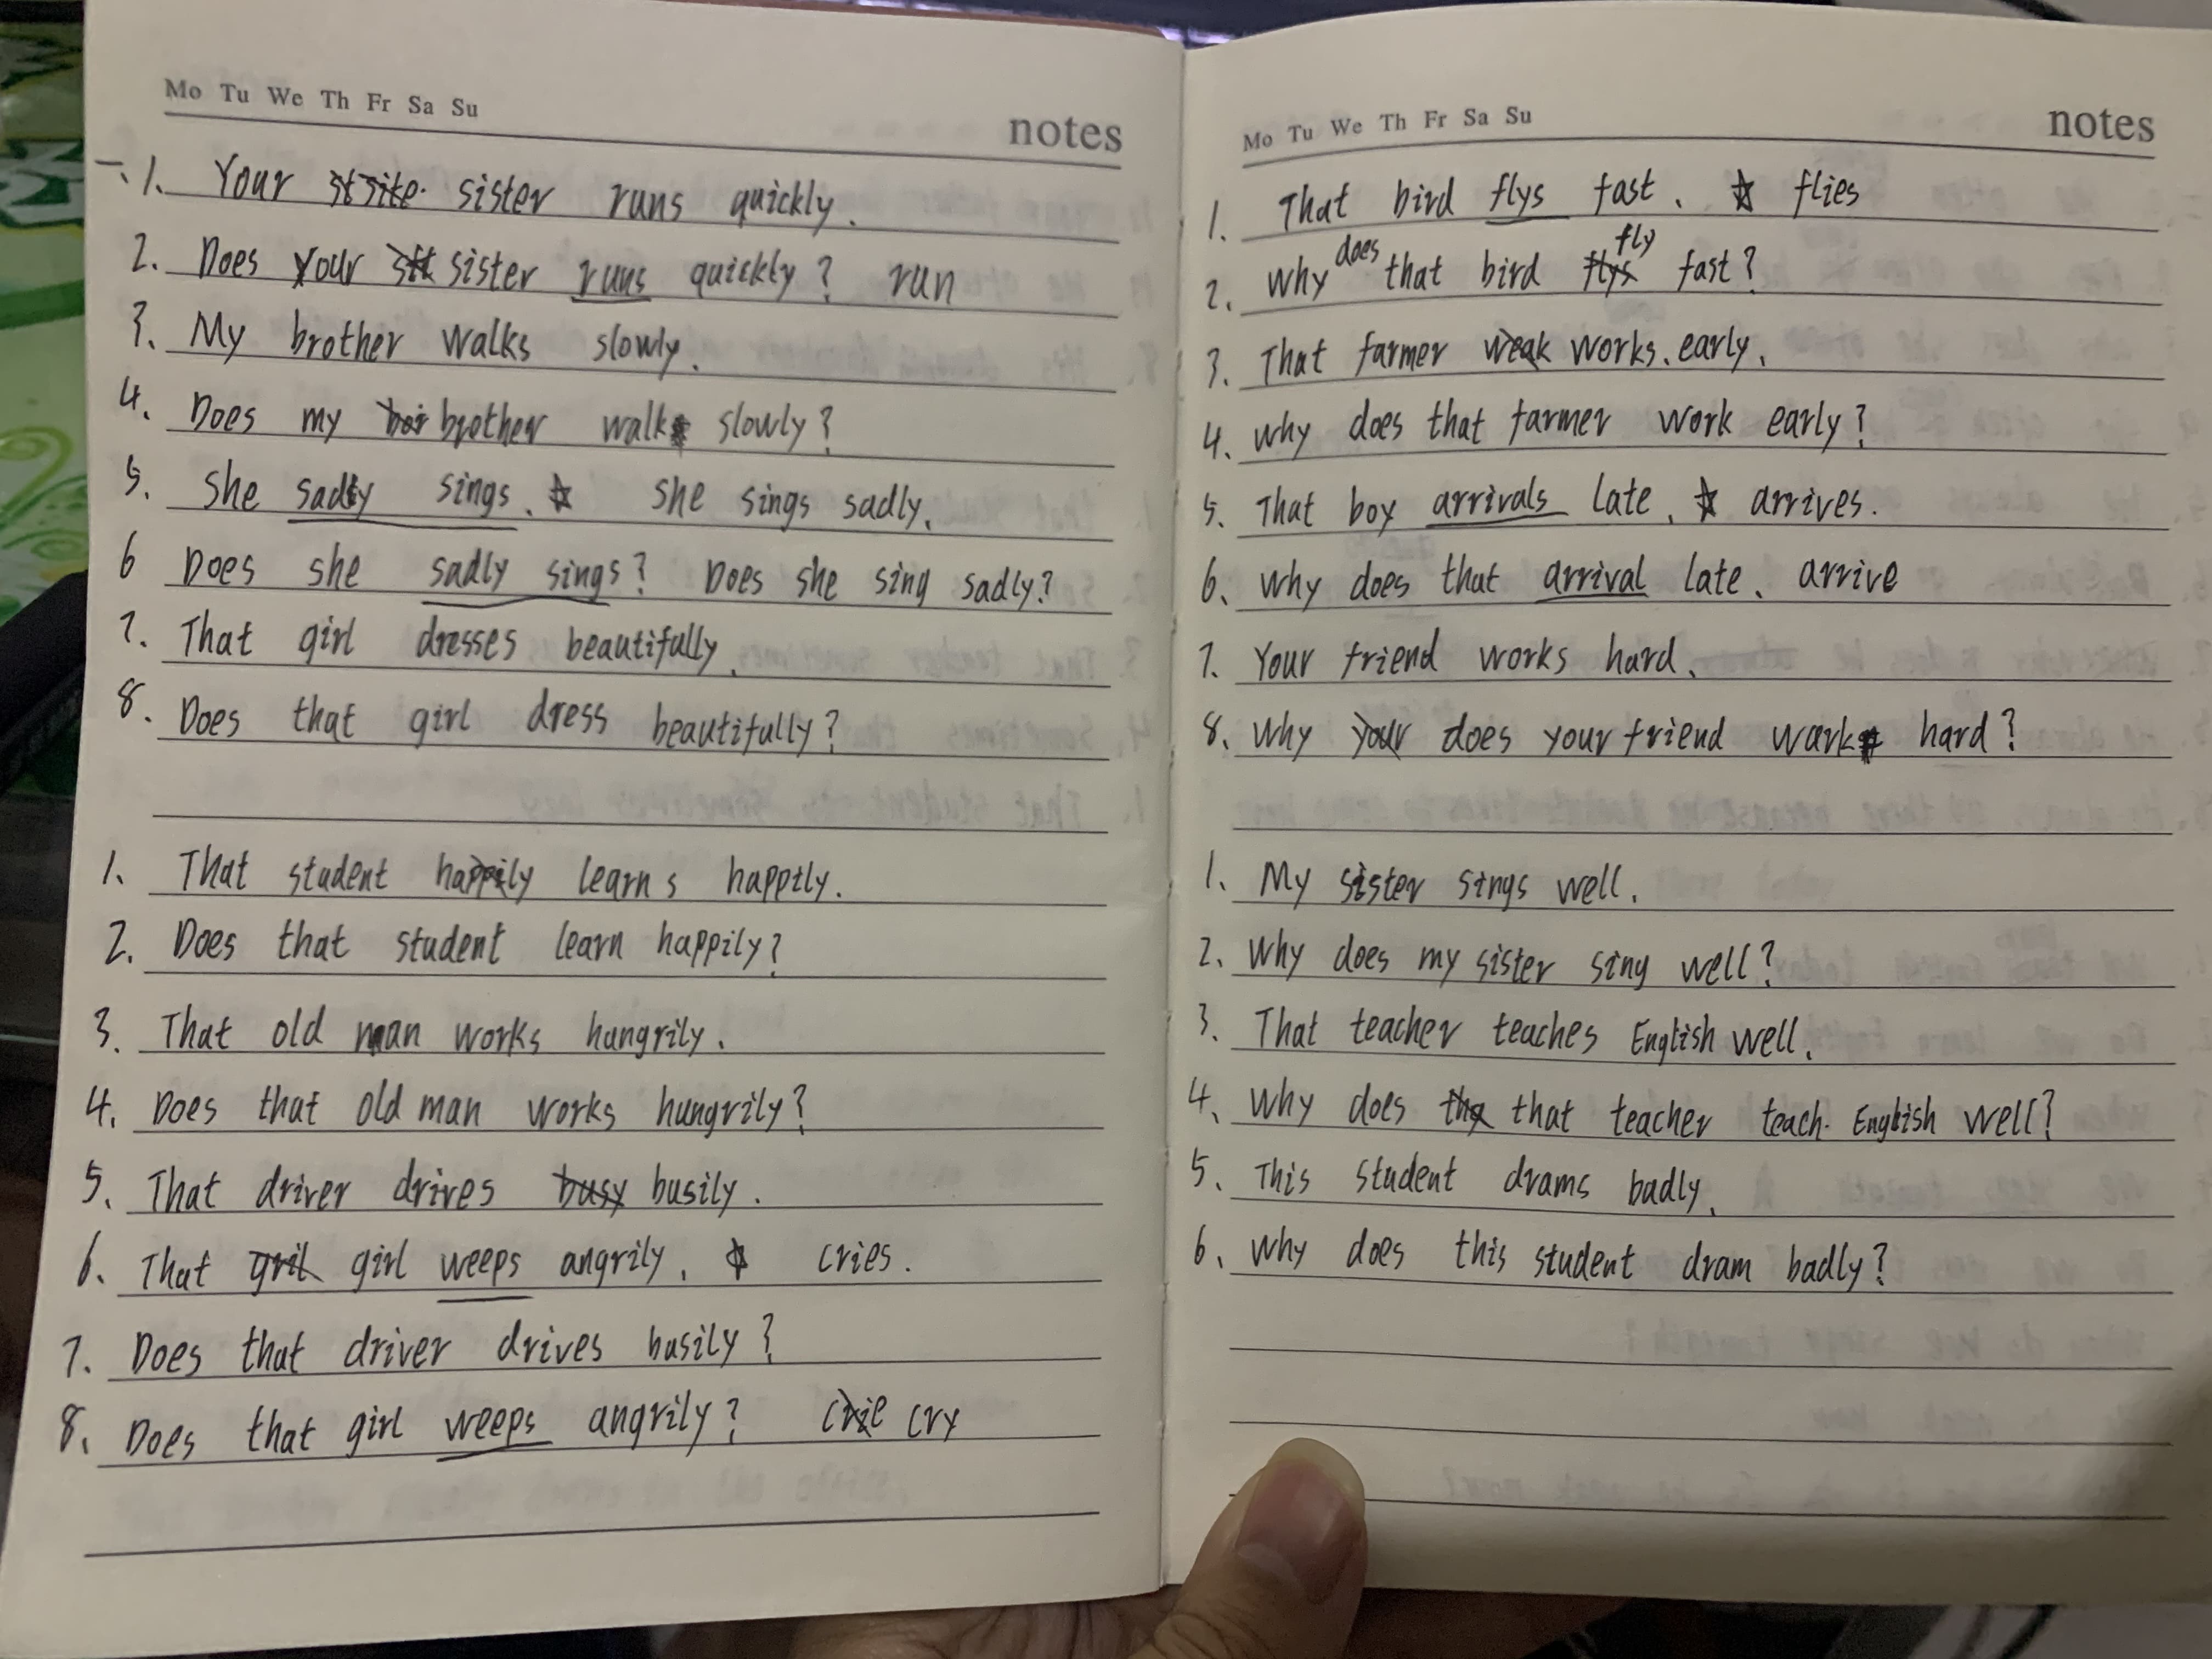 Mo Tu We Th Fr Sa Su
notes
一. 1. Your sister runs quickly.
2. Does your sister runs quickly? run
3. My brother walks slowly.
4. Does my brother walk slowly?
5. She sadly sings. ☆ she sings sadly.
6 Does she sadly sings? Does she sing sadly?
7. That girl dresses beautifully.
8. Does that girl dress beautifully?
1. That student happily learns happily.
2. Does that student learn happily?
3. That old man works hungrily.
4. Does that old man works hungrily?
5. That driver drives busy busily.
6. That gril girl weeps angrily. ☆ cries.
7. Does that driver drives busily?
8. Does that girl weeps angrily? crie cry
Mo Tu We Th Fr Sa Su
notes
1. That bird flys fast. ☆ flies
2. Why does that bird flys fly fast?
3. That farmer weak works. early.
4. Why does that farmer work early?
5. That boy arrivals late. ☆ arrives.
6. Why does that arrival late. arrive
7. Your friend works hard.
8. Why your does your friend work hard?
1. My sister sings well.
2. Why does my sister sing well?
3. That teacher teaches English well.
4. Why does tha that teacher teach. English well?
5. This student drams badly.
6. Why does this student dram badly?